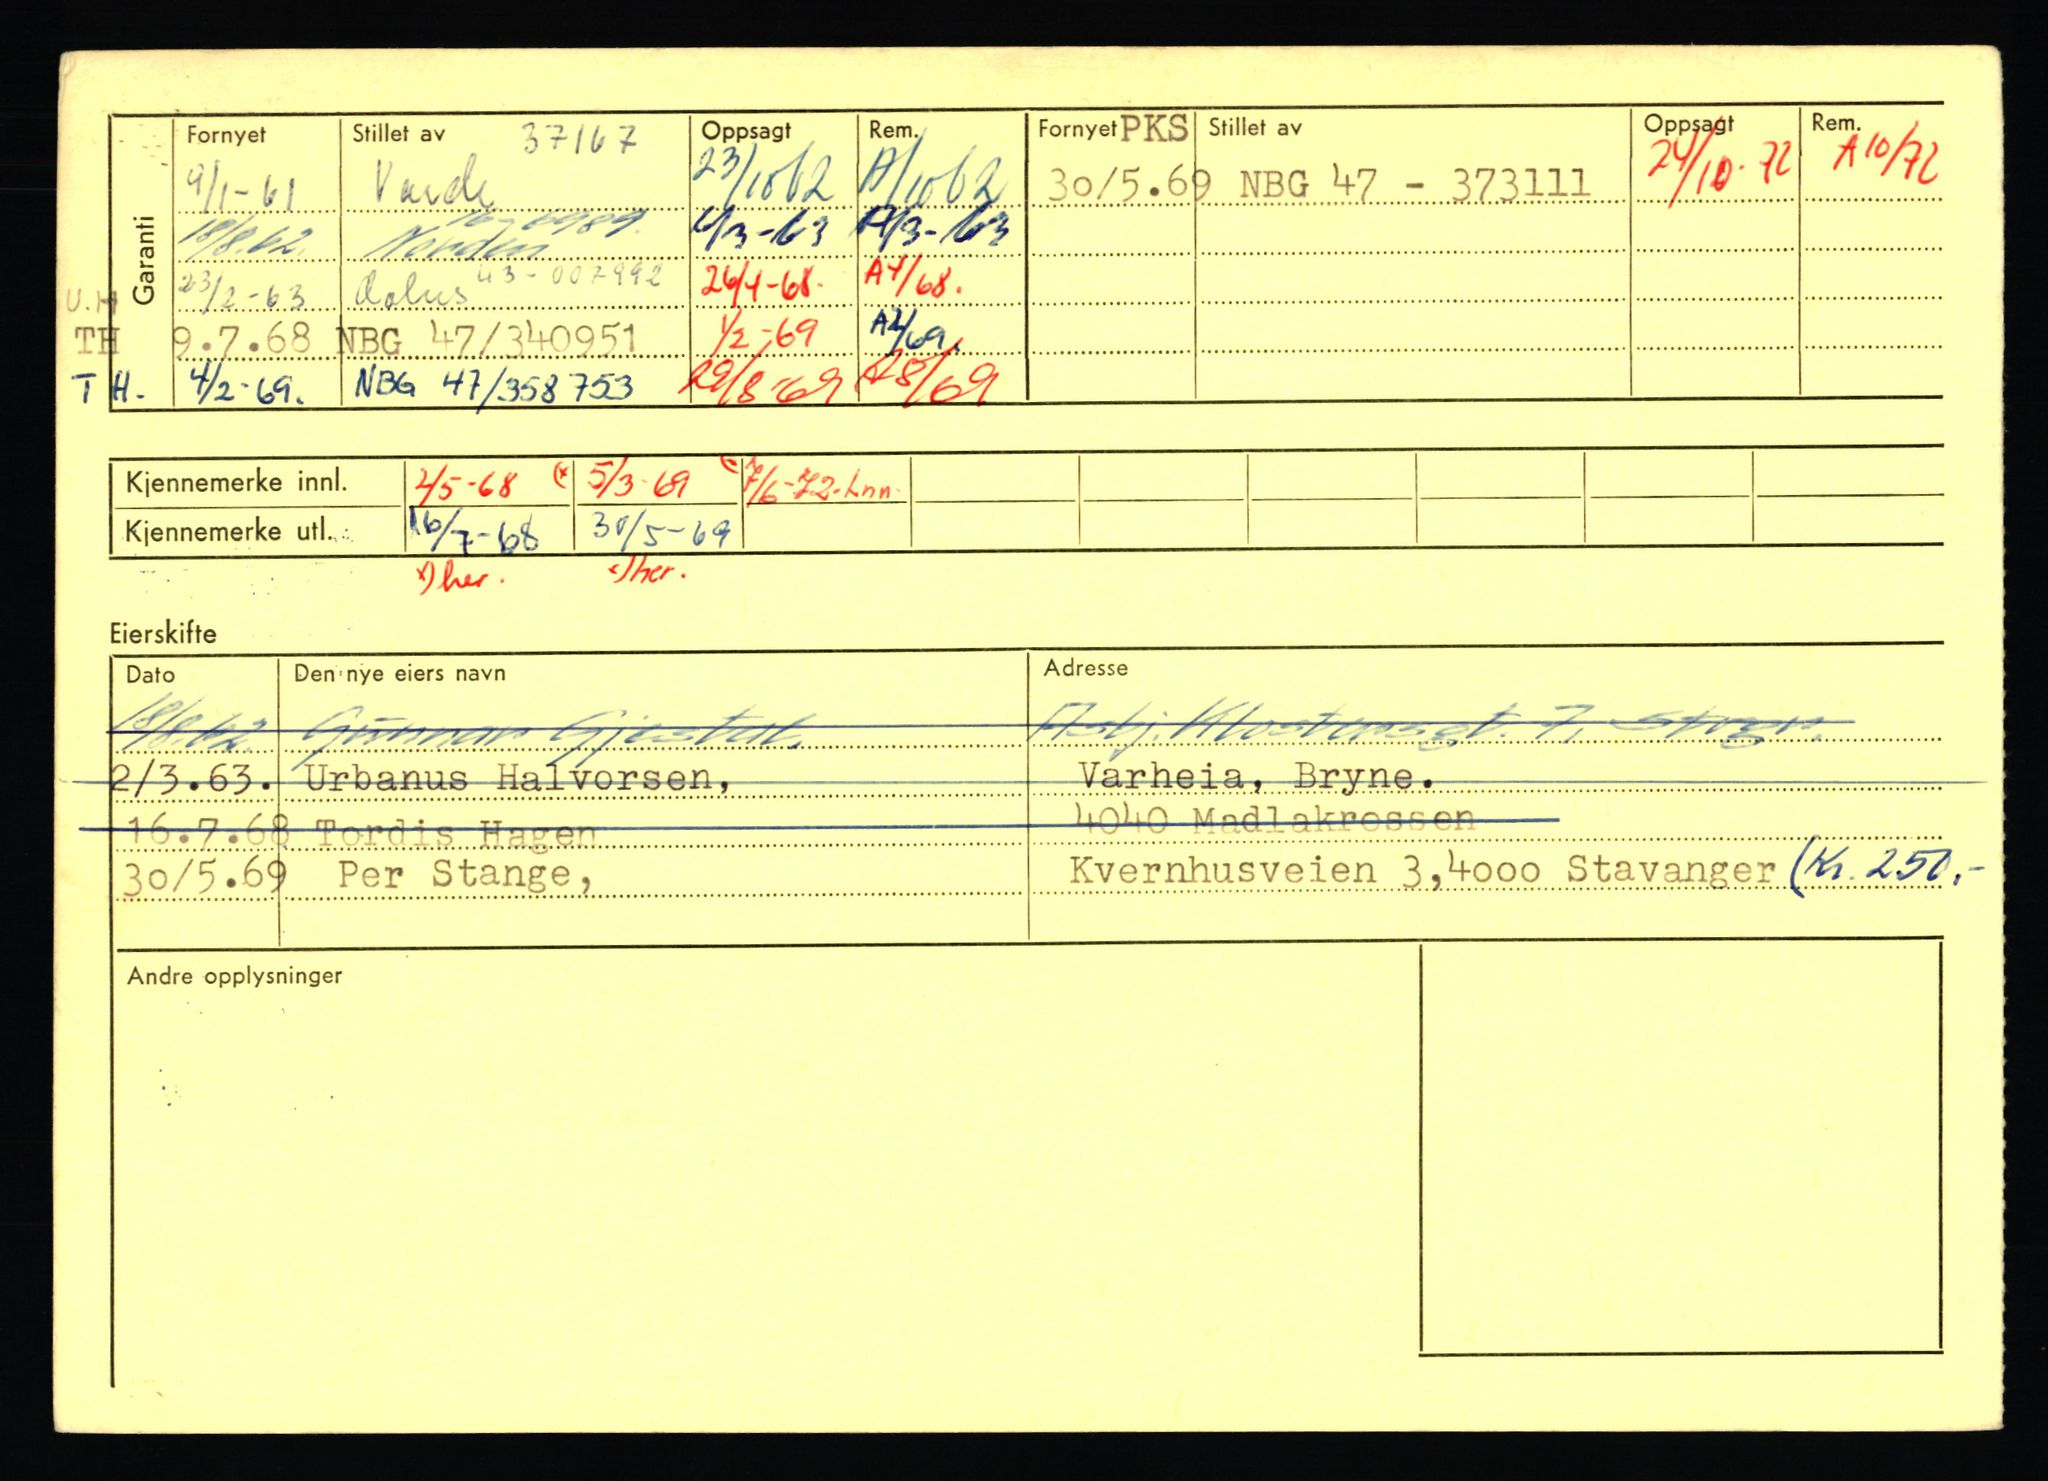 Garanti
Fornyet Stillet av 37167 Oppsagt Rem. Fornyet PKS Stillet av Oppsagt Rem.
9/1-61 Varde 23/10 62 A/10 62 30/5.69 NBG 47 - 373111 24/10-72 A 10/72
18/8.62. Norden 6/3-63 A/3-63
U.H 23/2-63 43-007992 26/4-68. A4/68.
TH 9.7.68 NBG 47/340951 1/2-69 A2/69.
T H. 4/2-69. NBG 47/358753 29/8-69 A8/69
Kjennemerke innl. 2/5-68 (x 5/3-69 7/6-72-Lnn.
Kjennemerke utl. 16/7-68 30/5-69
x) her. x) her.
Eierskifte
Dato Den nye eiers navn Adresse
18/8.62. Gunnar Gjestal. Asbj. Klostersgt. 7, Stvgr.
2/3.63. Urbanus Halvorsen, Varheia, Bryne.
16.7.68 Tordis Hagen 4040 Madlakrossen
30/5.69 Per Stange, Kvernhusveien 3,4000 Stavanger (Kr. 250,-
Andre opplysninger